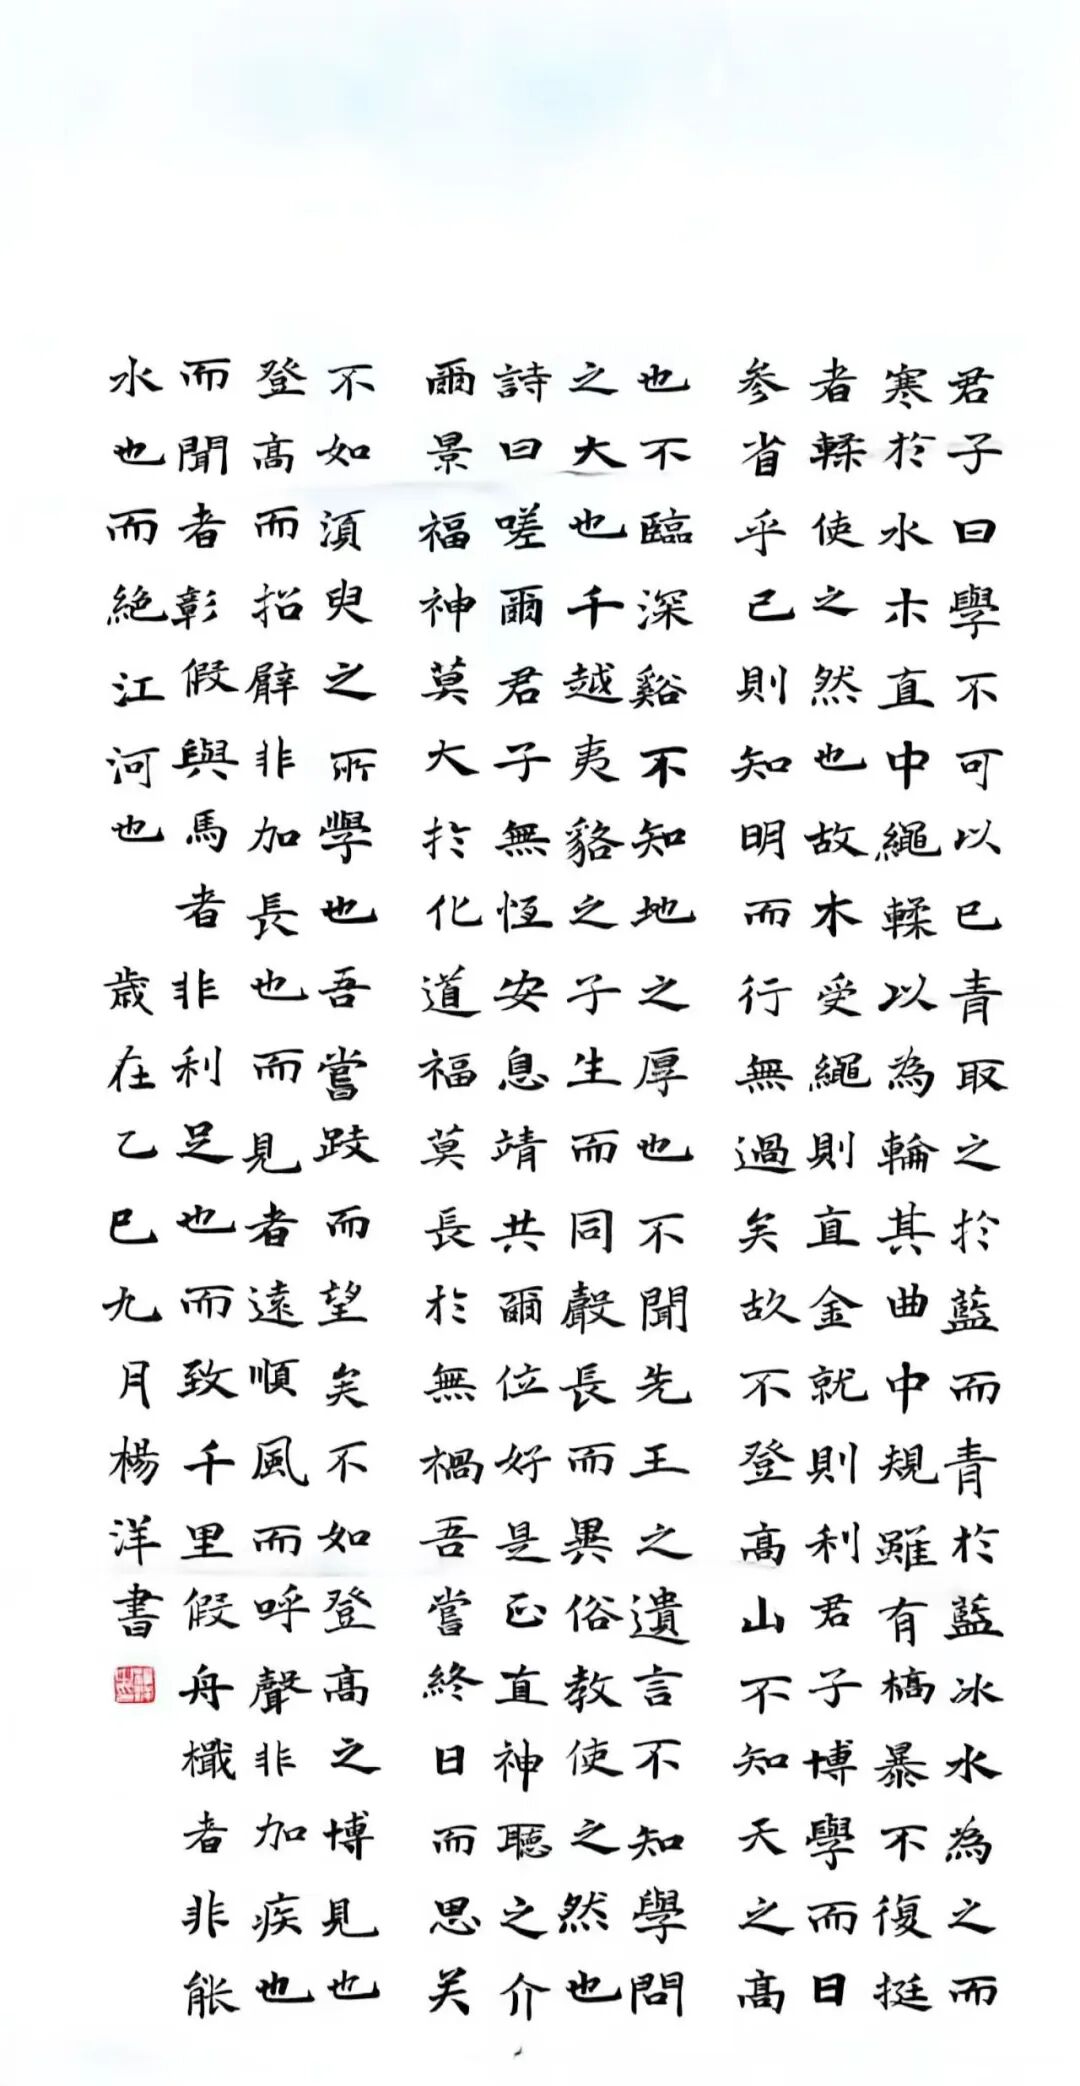 君子曰學不可以已青取之於藍而青於藍冰水為之而
寒於水木直中繩輮以為輪其曲中規雖有槁暴不復挺
者輮使之然也故木受繩則直金就則利君子博學而日
參省乎己則知明而行無過矣故不登高山不知天之高
也不臨深谿不知地之厚也不聞先王之遺言不知學問
之大也千越夷貉之子生而同聲長而異俗教使之然也
詩曰嗟爾君子無恆安息靖共爾位好是正直神聽之介
爾景福神莫大於化道福莫長於無禍吾嘗終日而思矣
不如須臾之所學也吾嘗跂而望矣不如登高之博見也
登高而招臂非加長也而見者遠順風而呼聲非加疾也
而聞者彰假與馬者非利足也而致千里假舟檝者非能
水也而絕江河也 歲在乙巳九月楊洋書